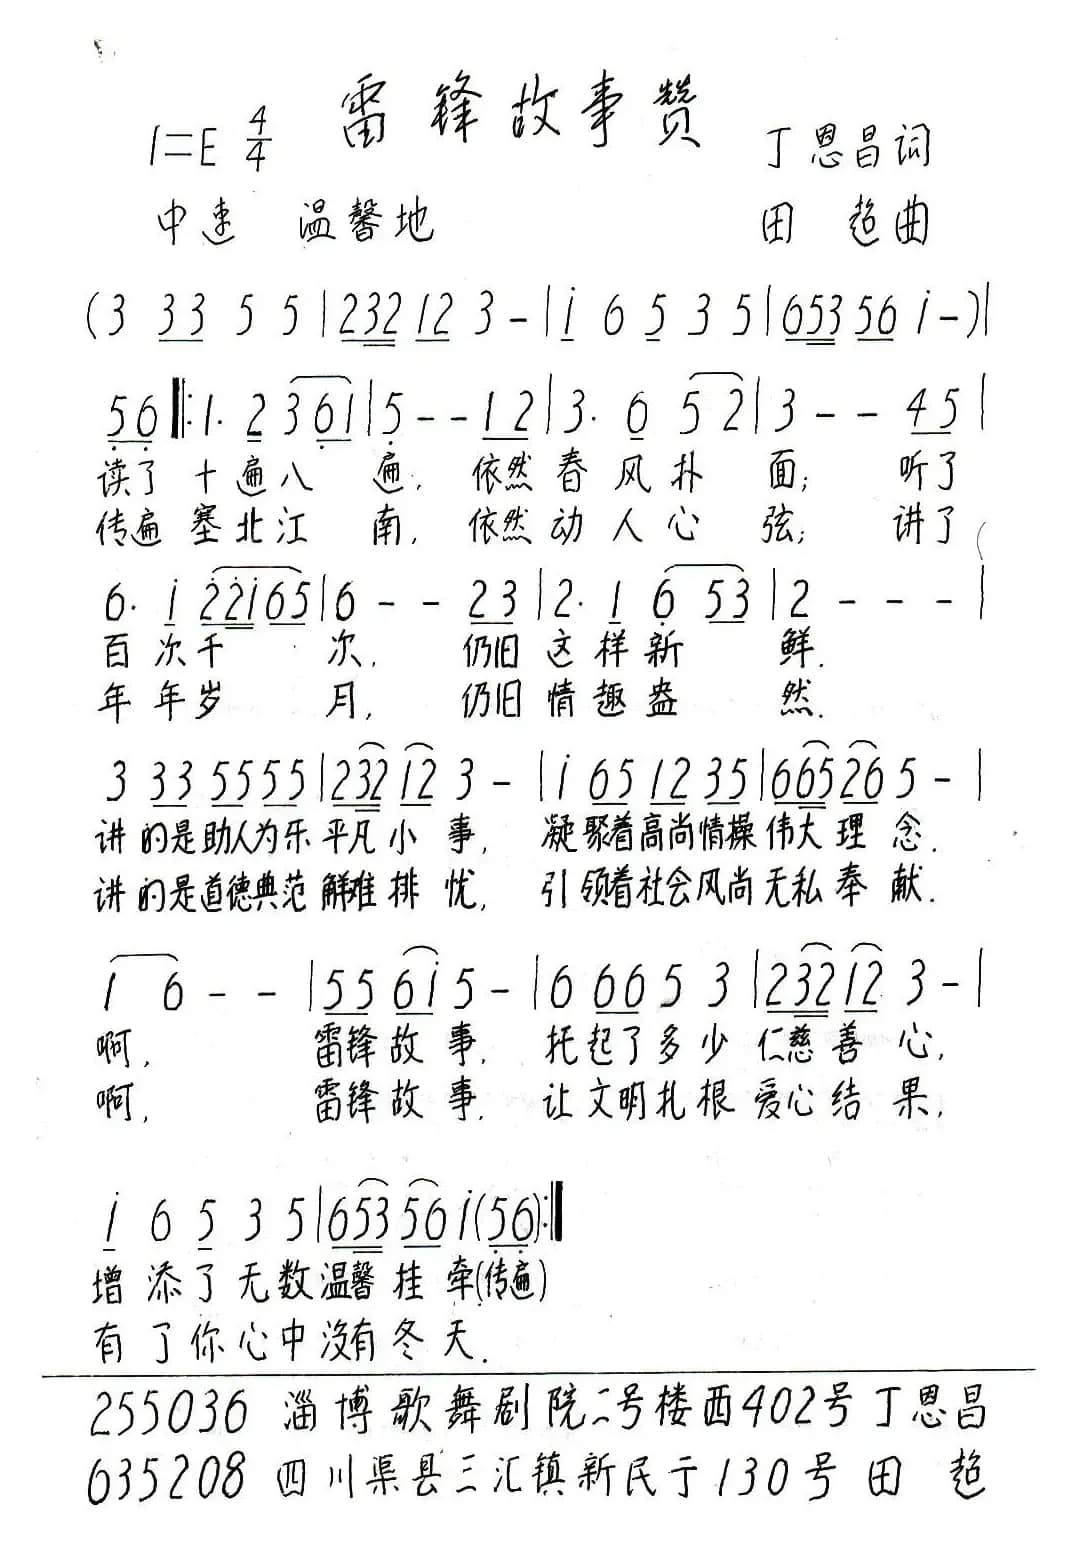 雷锋故事赞
1=E 4/4
丁恩昌词
中速 温馨地
田 超曲
(3 33 5 5 | 232 12 3 - | i 6 5 3 5 | 653 56 i - ) |
56 ‖: 1. 2 3 61 | 5 - - 12 | 3. 6 5 2 | 3 - - 45 |
读了 十遍八 遍, 依然春风扑 面; 听了
传遍 塞北江 南, 依然动人心 弦; 讲了
6. i 22i65 | 6 - - 23 | 2. 1 6 53 | 2 - - - |
百次千 次, 仍旧这样新 鲜.
年年岁 月, 仍旧情趣盎 然.
3 33 5555 | 232 12 3 - | i 65 12 35 | 665 26 5 - |
讲的是助人为乐平凡小 事, 凝聚着高尚情操伟大理 念.
讲的是道德典范解难排 忧, 引领着社会风尚无私奉 献.
1 6 - - | 55 6i 5 - | 6 66 5 3 | 232 12 3 - |
啊, 雷锋故 事, 托起了多少仁慈善 心,
啊, 雷锋故 事, 让文明扎根爱心结 果,
i 6 5 3 5 | 653 56 i (56) :‖
增添了无数温馨挂 牵(传遍)
有了你心中没有冬 天.
255036 淄博歌舞剧院二号楼西402号丁恩昌
635208 四川渠县三汇镇新民于130号 田 超